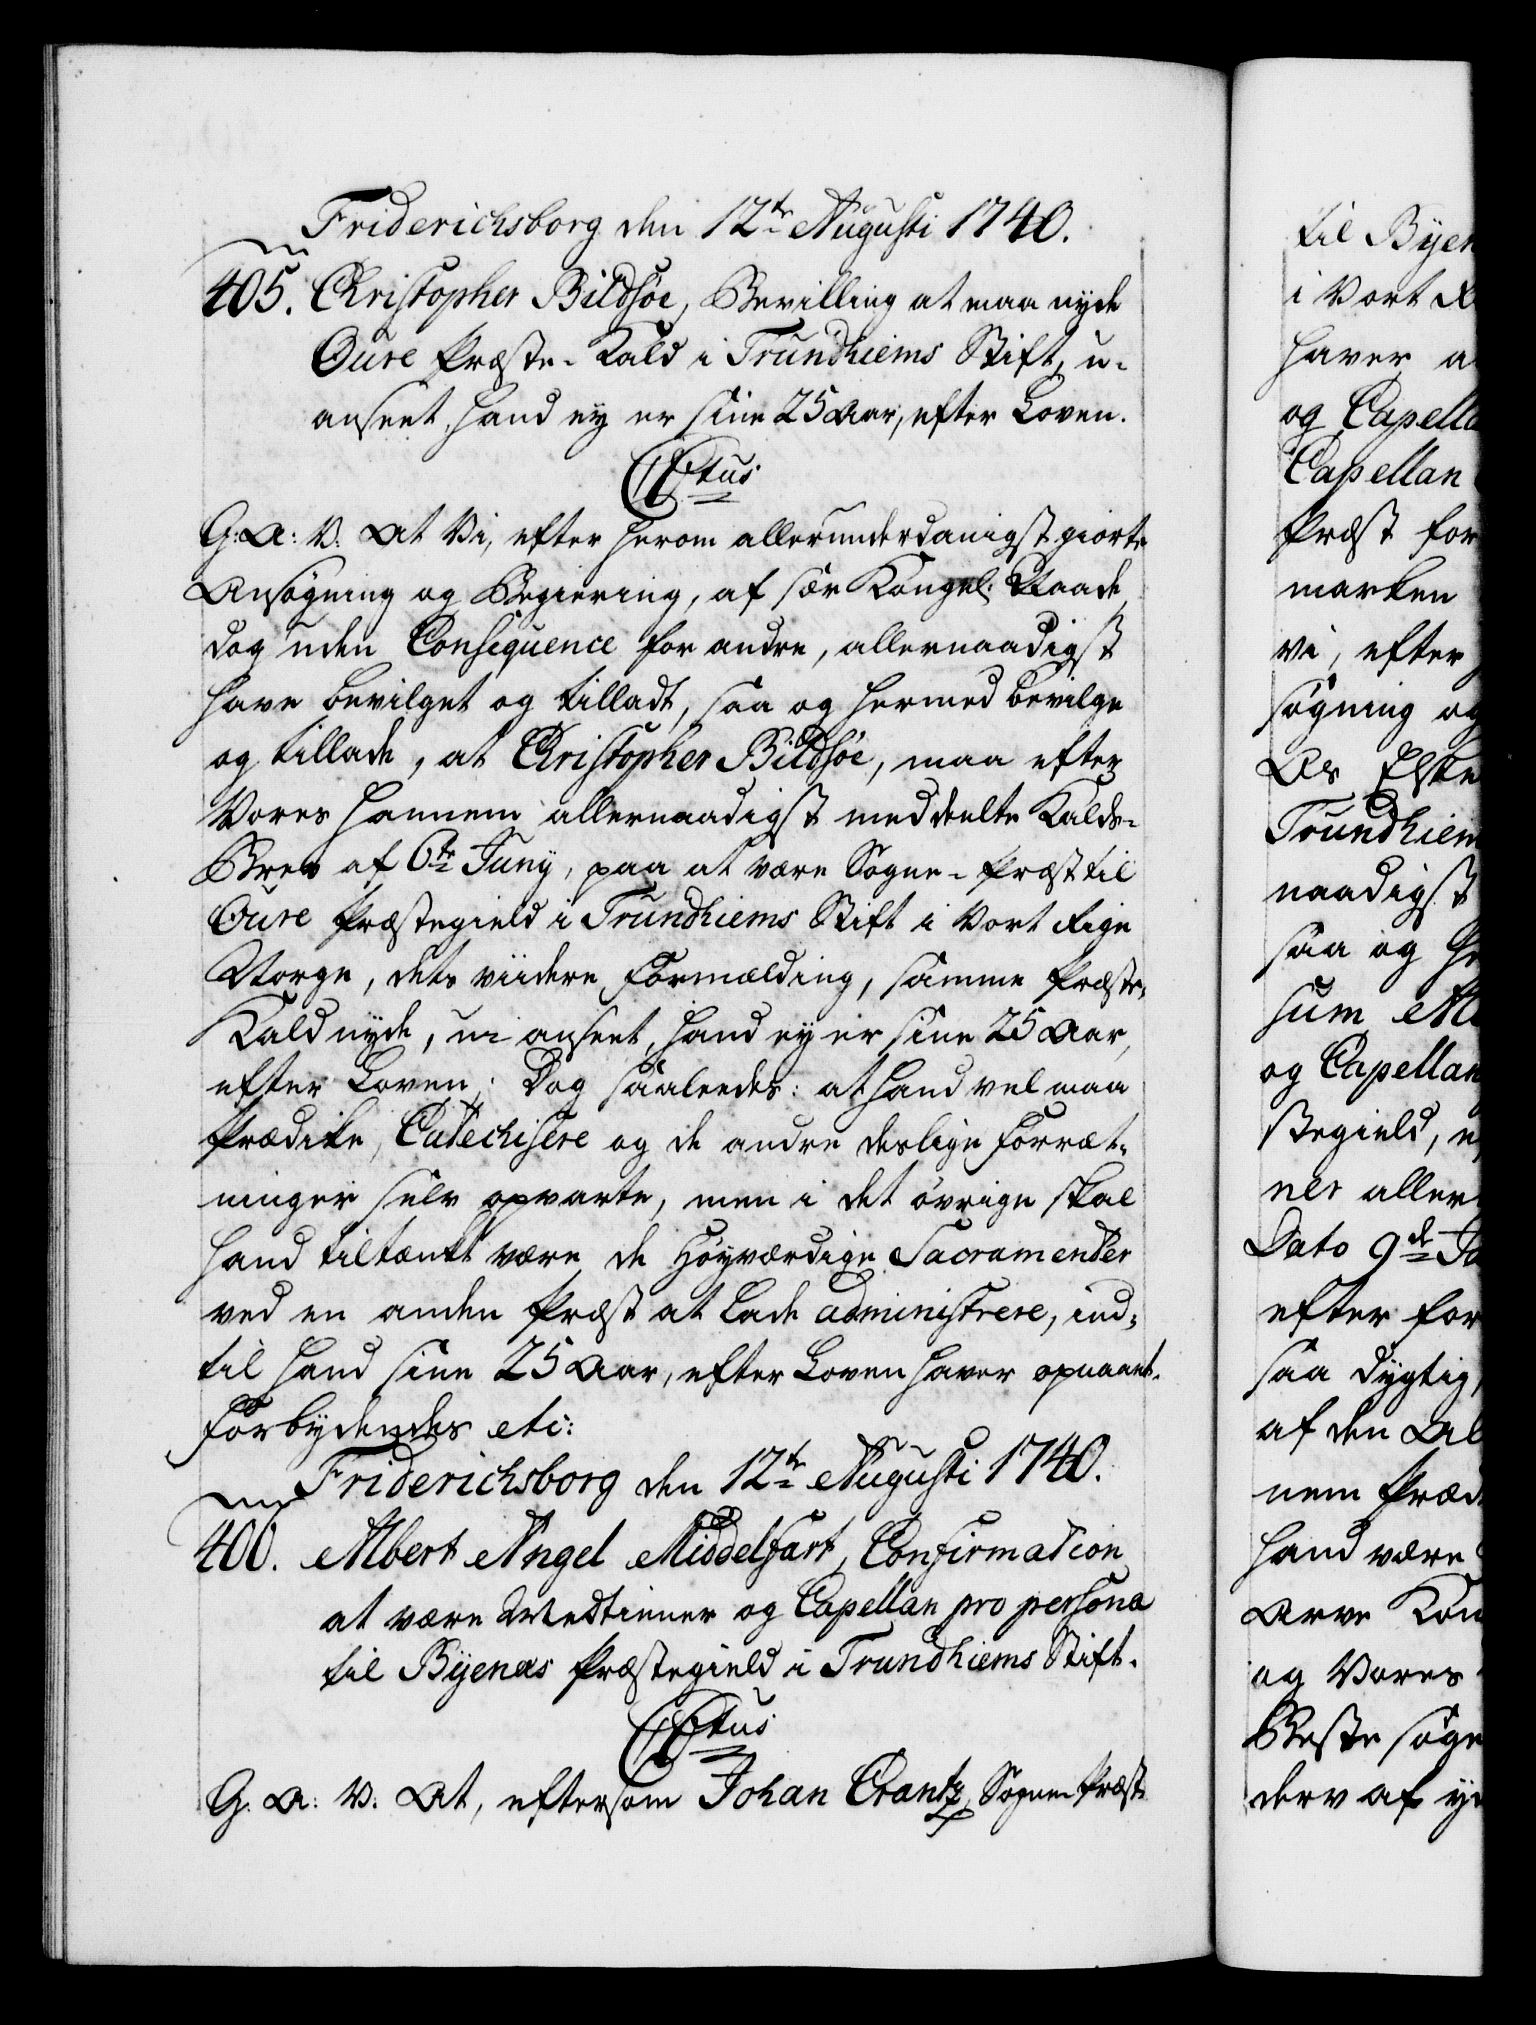 Friderichsborg den 12te Augusti 1740.
405. Christopher Bildsøe, Bevilling at maa nyde
Oure Præste-Kald i Trundhiems Stift, u-
anseet hand ey er sine 25 Aar, efter Loven.
C6tus
G: A: V. At Vi, efter herom allerunderdanigst giorte
Ansøgning og Begiering, af sær Kongel: Naade,
dog uden Consequence for andre, allernaadigst
have bevilget og tilladt, saa og hermed bevilge
og tillade, at Christopher Bildsøe, maa efter
Vores hannem allernaadigst meddeelte Kalds-
Brev af 6te Juny, paa at være Sogne-Præst til
Oure Præstegield i Trundhiems Stift i Vort Rige
Norge, dets viidere Formælding, samme Præste-
Kald nyde, u-anseet, hand ey er sine 25 Aar,
efter Loven; Dog saaleedes: at hand vel maa
Prædike, Catechisere og de andre deslige Forræt-
ninger selv opvarte, men i det øvrige skal
hand tiltænkt være de Høyværdige Sacramenter
ved en anden Præst at lade administrere, ind-
til hand sine 25 Aar, efter Loven haver opnaaet.
Forbydendes etc:
Friderichsborg den 12te Augusti 1740.
406. Albert Angel Middelfart, Confirmation
at være Medtiener og Capellan pro persona
til Byenæs Præstegield i Trundhiems Stift.
C6tus
G: A: V: At, eftersom Johan Crantz, Sogne-Præst
til Byen
i Vort R
haver a
og Capella
Capellan
Præst for
marken
vi, efter
søgning og
Os Elske
Trundhiem
naadigst
saa og He
sum, Al
og Capellan
stegield, e
ner aller
Dato 9de Ja
efter for
saa dygtig,
af den Al
nem Præd
hand være
Arve Kon
og Vores
Beste søge
derv af ÿ